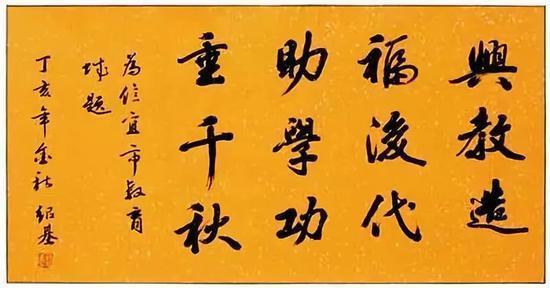 興教造
福後代
助學功
垂千秋
為信宜市教育
城題
丁亥年金秋紹基